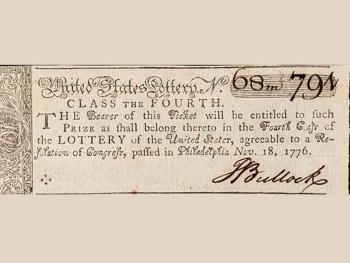 United States Lottery. N.º 68m 791
CLASS THE FOURTH.
THE Bearer of this Ticket will be entitled to such
PRIZE as shall belong thereto in the Fourth Claſs of
the LOTTERY of the United States, agreeable to a Re-
ſolution of Congreſs, paſſed in Philadelphia Nov. 18, 1776.
JBullock